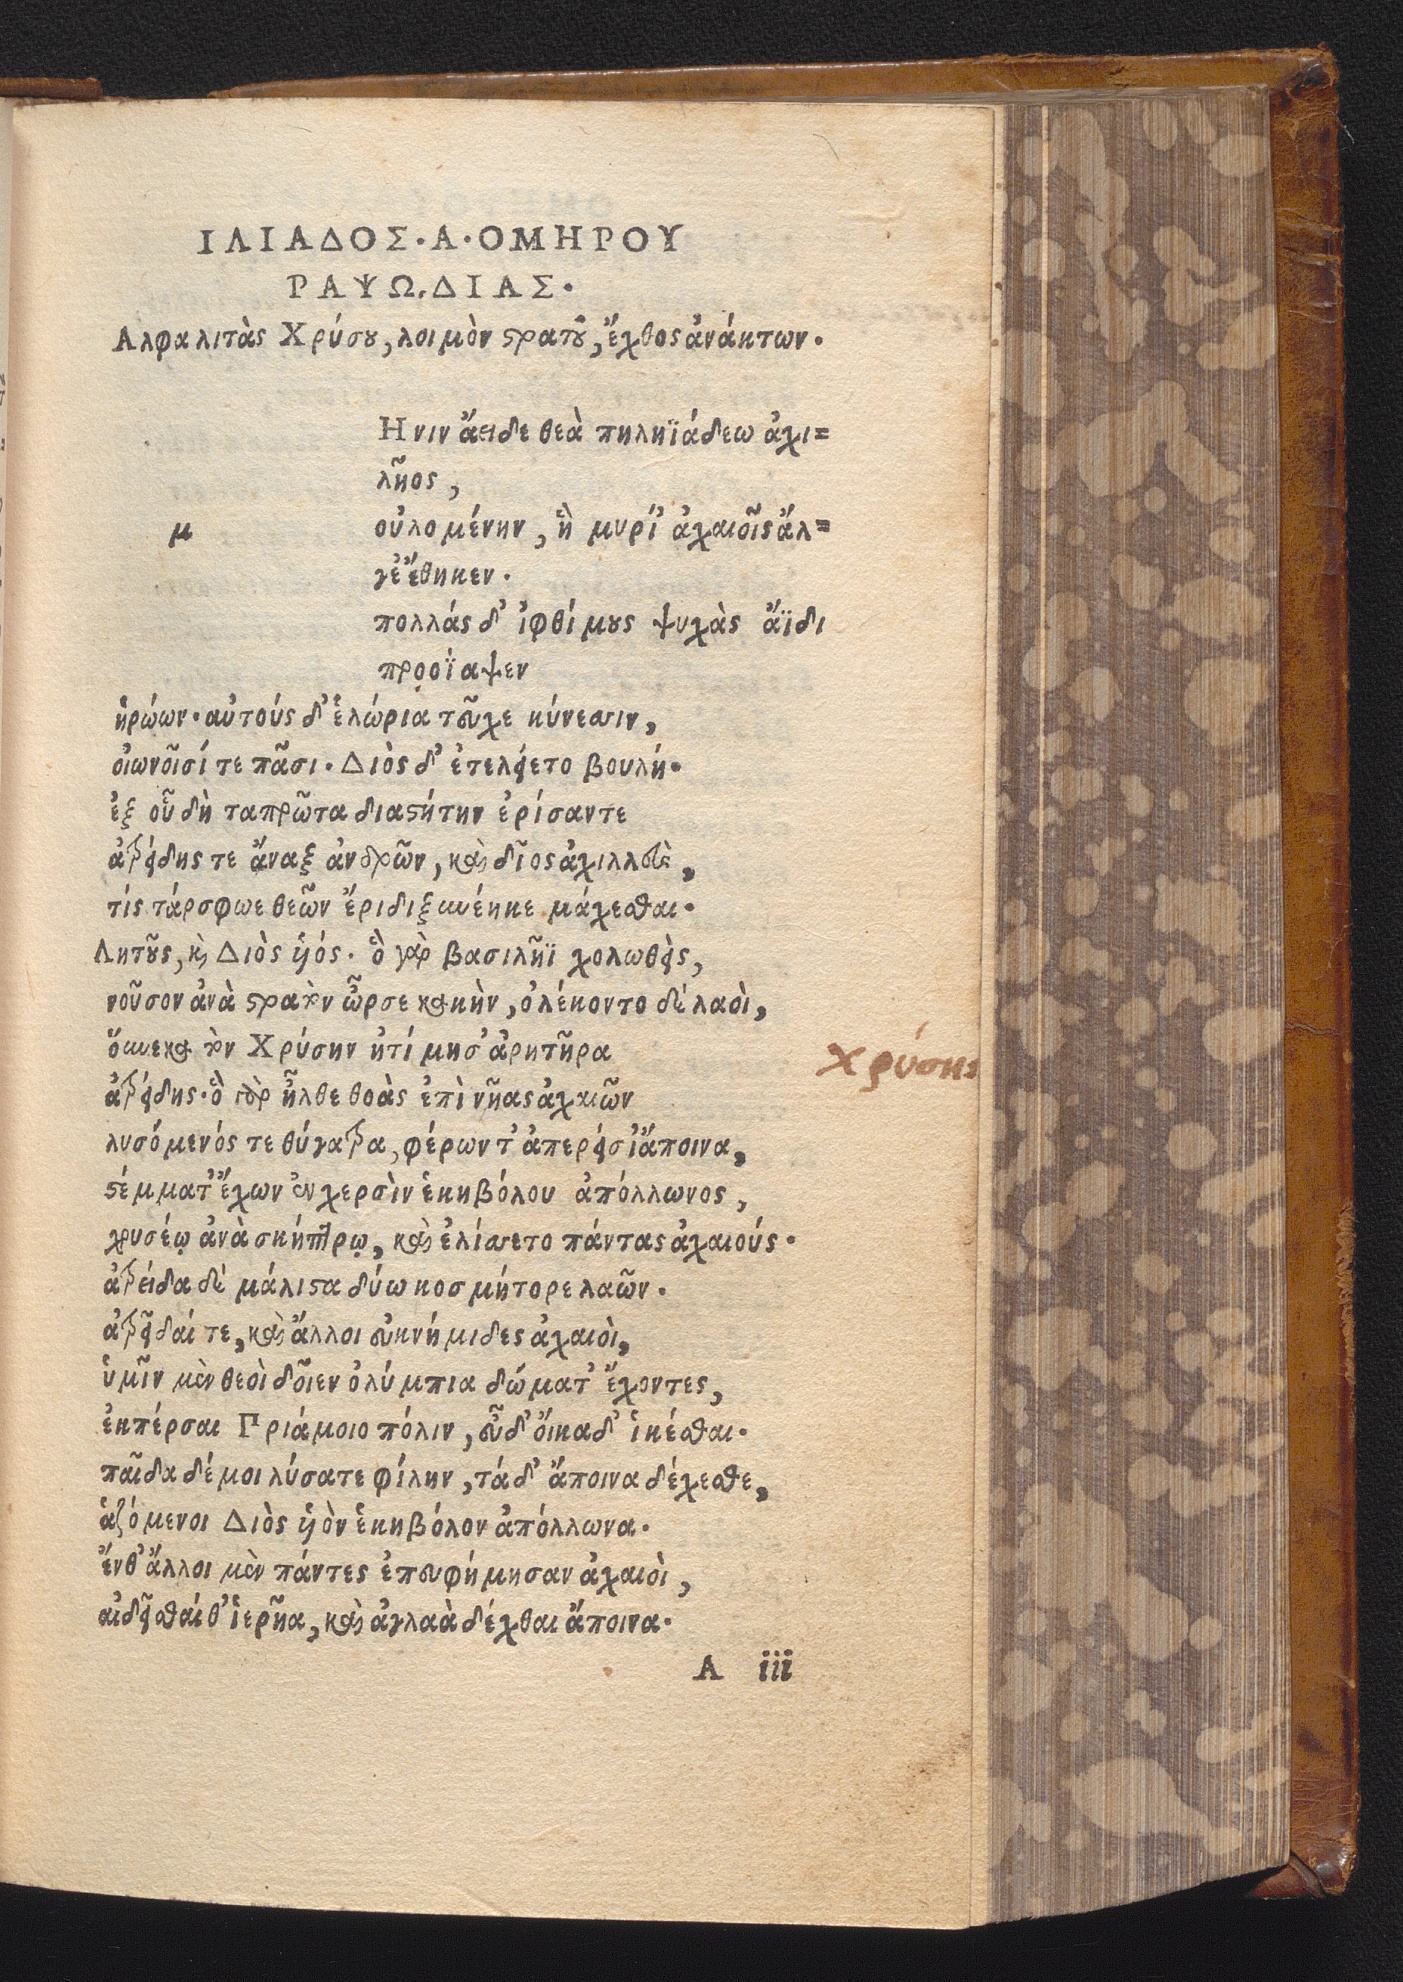 ΙΛΙΑΔΟΣ·Α·ΟΜΗΡΟΥ
ΡΑΨΩ,ΔΙΑΣ·
Αλφα λιτὰς Χρύσου, λοιμὸν στρατοῦ, ἔχθος ἀνάκτων·
Ηνιν ἄειδε θεὰ πηληϊάδεω ἀχι=
λῆος,
μ
οὐλομένην, ἣ μυρί' ἀχαιοῖς ἄλ=
γε' ἔθηκεν·
πολλάς δ' ἰφθίμους ψυχὰς ἄϊδι
προσϊαψεν
ἡρώων· αὐτούς δ' ἑλώρια τεῦχε κύνεσσιν,
οἰωνοῖσί τε πᾶσι· Διὸς δ' ἐτελείετο βουλή·
ἐξ οὗ δὴ ταπρῶτα διαστήτην ἐρίσαντε
ἀτρείδης τε ἄναξ ἀνδρῶν, καὶ δῖος ἀχιλλεὺς,
τίς τάρσφωε θεῶν ἔριδι ξυνέηκε μάχεσθαι·
Λητοῦς, καὶ Διὸς ὑός· ὃ γὰρ βασιλῆϊ χολωθεὶς,
νοῦσον ἀνὰ στρατὸν ὦρσε κακὴν, ὀλέκοντο δέ λαοὶ,
ὅυνεκα τὸν Χρύσην ἠτίμησ' ἀρητῆρα
Χρύσης
ἀτρείδης· ὃ γὰρ ἦλθε θοὰς ἐπὶ νῆας ἀχαιῶν
λυσόμενός τε θύγατρα, φέρων τ' ἀπερείσι' ἄποινα,
στέμματ' ἔχων ἐν χερσὶν ἑκηβόλου ἀπόλλωνος,
χρυσέῳ ἀνὰ σκήπτρῳ, καὶ ἐλίσσετο πάντας ἀχαιούς·
ἀτρείδα δὲ μάλιστα δύω κοσμήτορε λαῶν·
ἀτρεῖδαί τε, καὶ ἄλλοι εὐκνήμιδες ἀχαιοὶ,
ὑμῖν μὲν θεοὶ δοῖεν ὀλύμπια δώματ' ἔχοντες,
ἐκπέρσαι Πριάμοιο πόλιν, εὖ δ' ὄικαδ' ἱκέσθαι·
παῖδα δέ μοι λύσατε φίλην, τά δ' ἄποινα δέχεσθε,
ἁζόμενοι Διὸς ὑὸν ἑκηβόλον ἀπόλλωνα·
ἔνθ' ἄλλοι μὲν πάντες ἐπευφήμησαν ἀχαιοὶ,
αἰδεῖσθαί θ' ἱερῆα, καὶ ἀγλαὰ δέχθαι ἄποινα·
Α iii